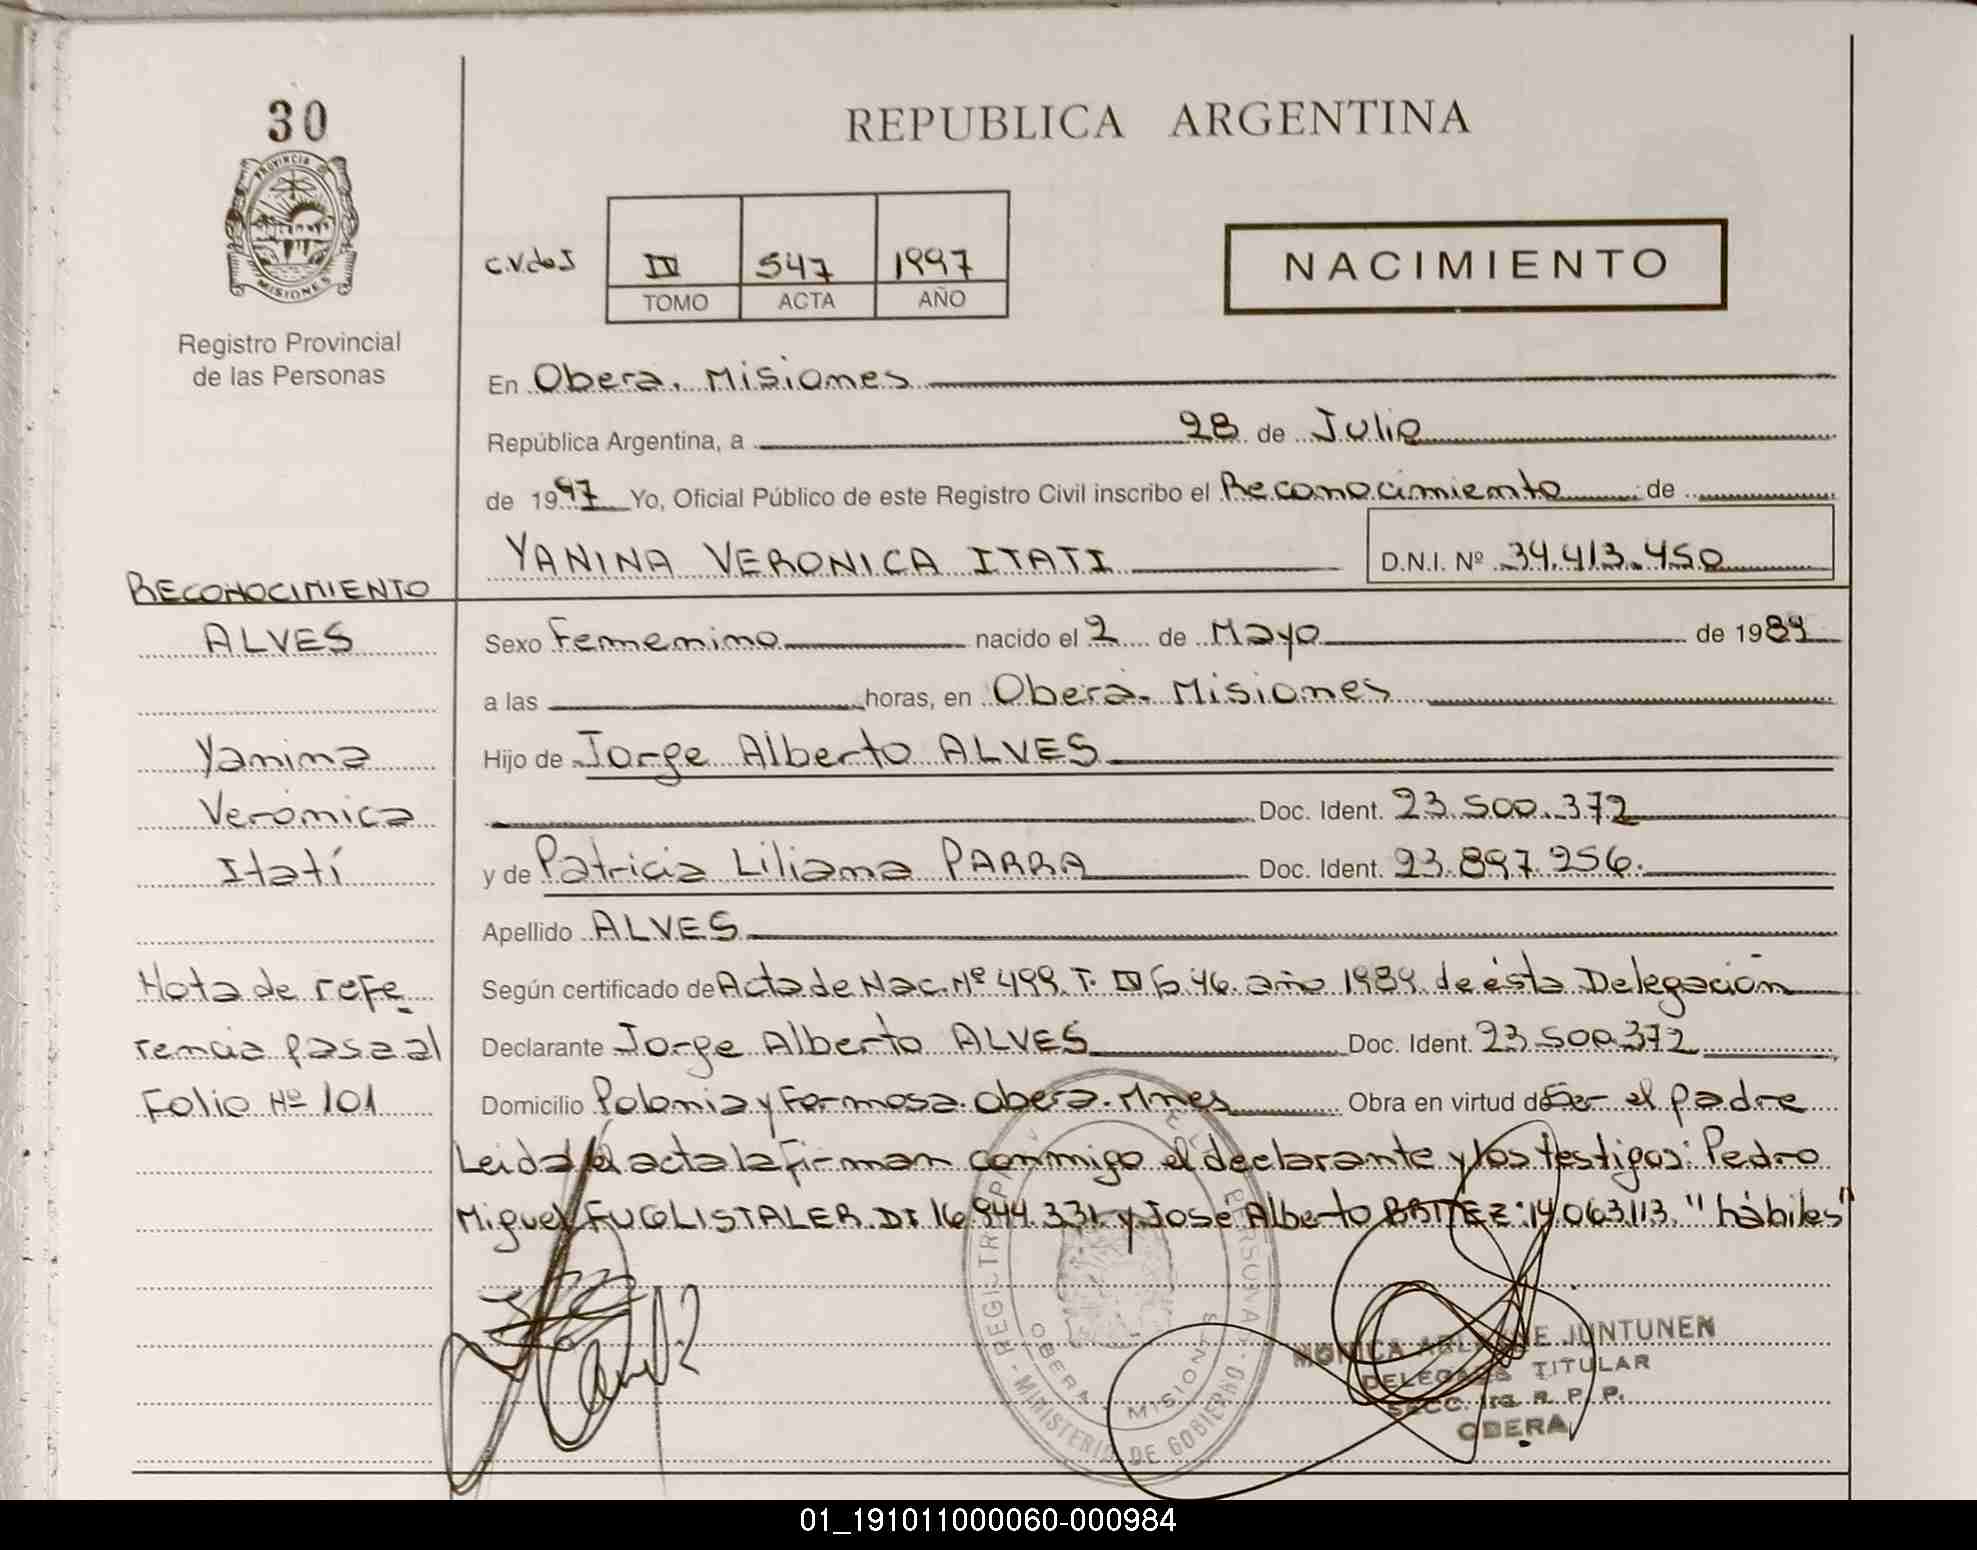 30
PROVINCIA
MISIONES
Registro Provincial
de las Personas
REPUBLICA ARGENTINA
C.V. de I
IV 547 1997
TOMO ACTA AÑO
NACIMIENTO
En Obera. Misiones
República Argentina, a 28 de Julio
de 1997 Yo, Oficial Público de este Registro Civil inscribo el Reconocimiento de
YANINA VERONICA ITATI D.N.I. Nº 34.413.450
RECONOCIMIENTO
ALVES
Sexo Femenino nacido el 2 de Mayo de 1989
a las horas, en Oberá. Misiones
Yanina
Hijo de Jorge Alberto ALVES
Verónica
Doc. Ident. 23.500.372
Itatí
y de Patricia Liliana PARRA Doc. Ident. 23.897.256.
Apellido ALVES
Nota de refe
Según certificado de Acta de Nac. Nº 499. T. IV año 1989 de ésta Delegación
rencia pasa al
Declarante Jorge Alberto ALVES Doc. Ident. 23.500.372
Folio Nº 101
Domicilio Polonia y Formosa. Obera. Mnes Obra en virtud de Ser el padre
Leida el acta la firman conmigo el declarante y los testigos: Pedro
Miguel FUGLISTALER DI 16.944.331 y Jose Alberto BRITEZ: 14.063.113. "hábiles"
REGISTRO
MINISTERIO DE GOBIERNO
OBERA MISIONES
JUNTUNEN
TITULAR
SECC. 1ra. R. P. P.
OBERA
01_191011000060-000984